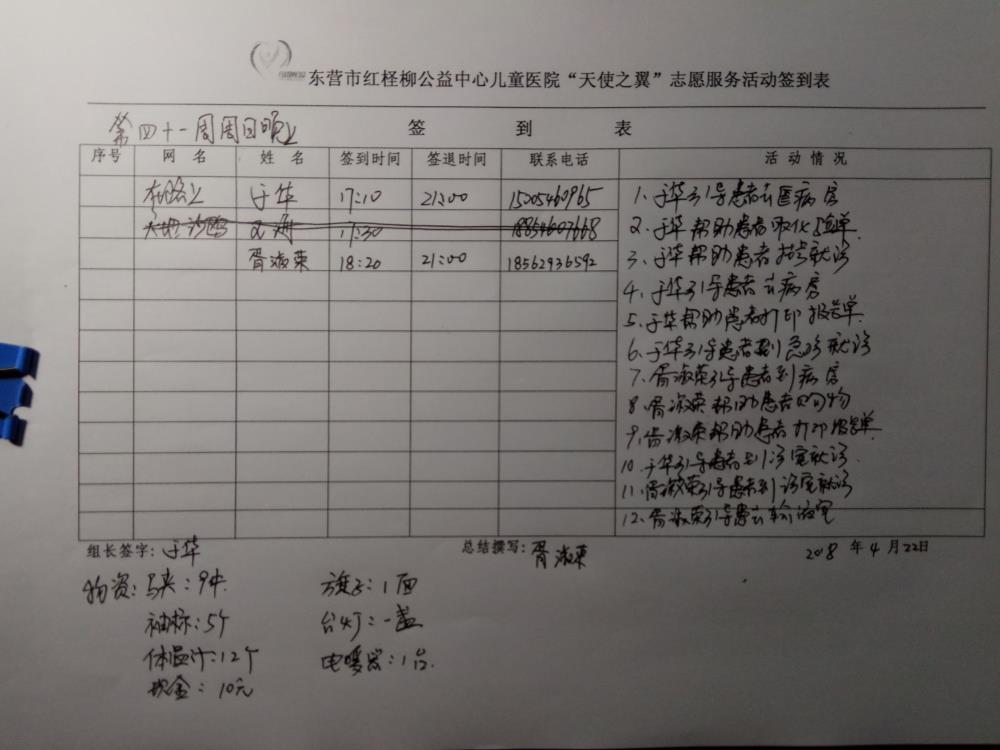 东营市红柽柳公益中心儿童医院“天使之翼”志愿服务活动签到表
第四十一周周日晚上
签 到 表
序号 网 名 姓 名 签到时间 签退时间 联系电话 活 动 情 况
在路上 于华 17:10 21:00 15005460965
17:30 18854607668
胥淑荣 18:20 21:00 18562936592
1. 于华引导患者去医病房
2. 于华帮助患者取化验单.
3. 于华帮助患者挂号就诊
4. 于华引导患者去病房
5. 于华帮助患者打印报告单.
6. 于华引导患者到急诊就诊
7. 胥淑荣引导患者到病房
8. 胥淑荣帮助患者购物
9. 胥淑荣帮助患者打印报告单.
10. 于华引导患者到诊室就诊.
11. 胥淑荣引导患者到诊室就诊
12. 胥淑荣引导患去输液室
组长签字: 于华 总结撰写: 胥淑荣 2018 年 4 月 22日
物资: 马夹: 9件. 旗子: 1面
袖标: 5个 台灯: 一盏
体温计: 12个 电暖器: 1台.
现金: 10元